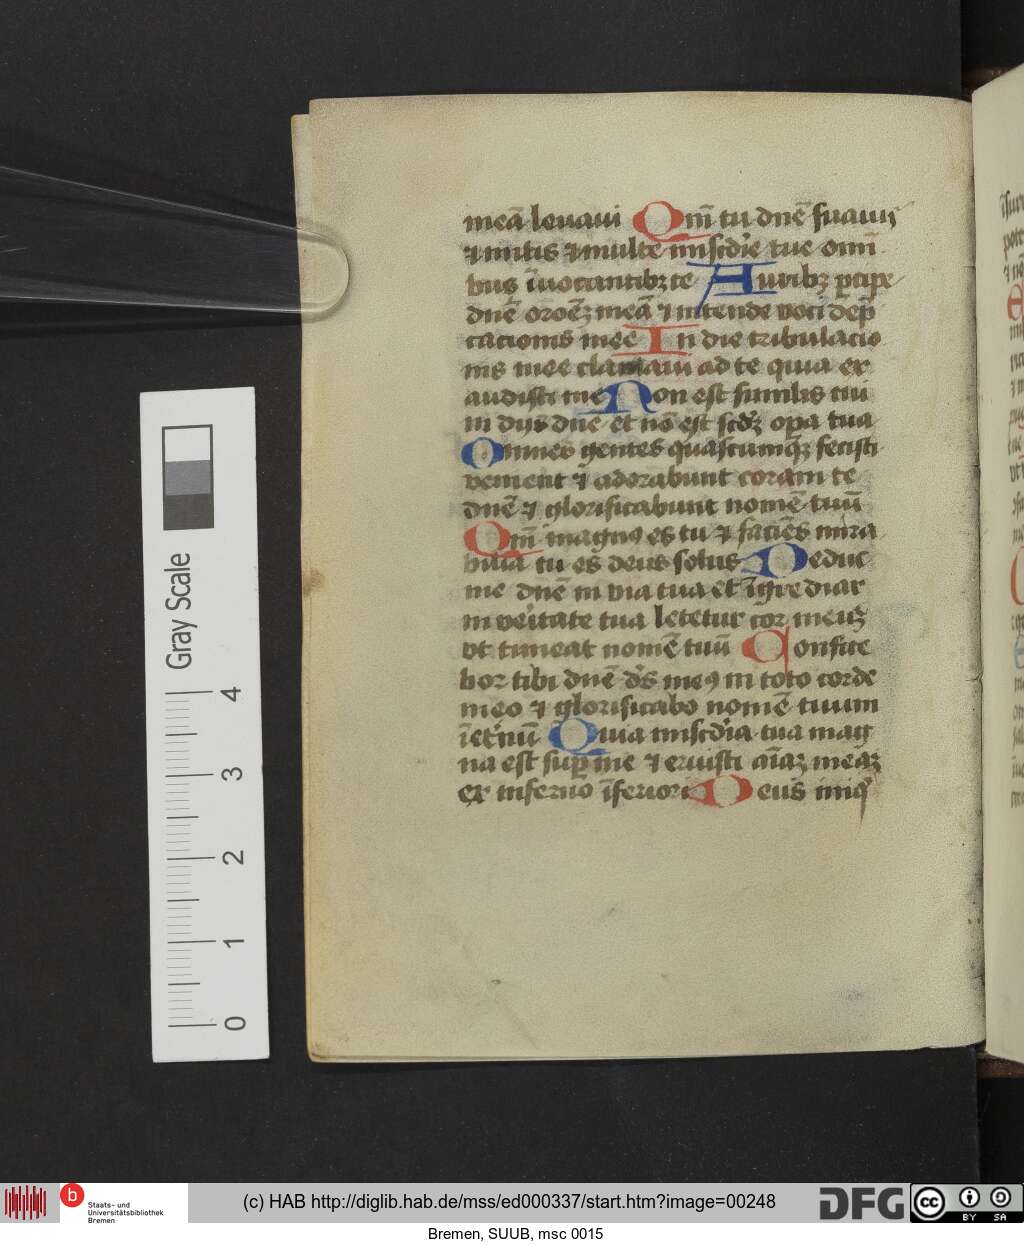 meā leuaui Qm̄ tu dn̄e suauis
⁊ mitis ⁊ multe mis̄cdie tue om̄i
bus īuocantibꝫ te Auribꝫ ꝑcipe
dn̄e oroēꝫ meā ⁊ intende voci dep̄
cacionis mee In die tribulacio
nis mee clamaui ad te quia ex
audisti me Non est similis tui
in dijs dn̄e et nō est scd̄ꝫ oꝑa tua
Omnes gentes quascumqꝫ fecisti
venient ⁊ adorabunt coram te
dn̄e ⁊ glorificabunt nomē tuū
Qm̄ magnꝰ es tu ⁊ faciēs mira
bilia tu es deus solus Deduc
me dn̄e in via tua et īgrediar
in veritate tua letetur cor meuꝫ
vt timeat nomē tuū Confite
bor tibi dn̄e ds̄ meꝰ in toto corde
meo ⁊ glorificabo nomē tuum
īet̄nū Quia mis̄cdia tua mag
na est suꝑ me ⁊ eruisti aīaꝫ meaꝫ
ex inferno īferiori Deus iniq̄
Gray Scale
4
3
2
1
0
b Staats- und
Universitätsbibliothek
Bremen
(c) HAB http://diglib.hab.de/mss/ed000337/start.htm?image=00248
DFG
cc BY SA
Bremen, SUUB, msc 0015